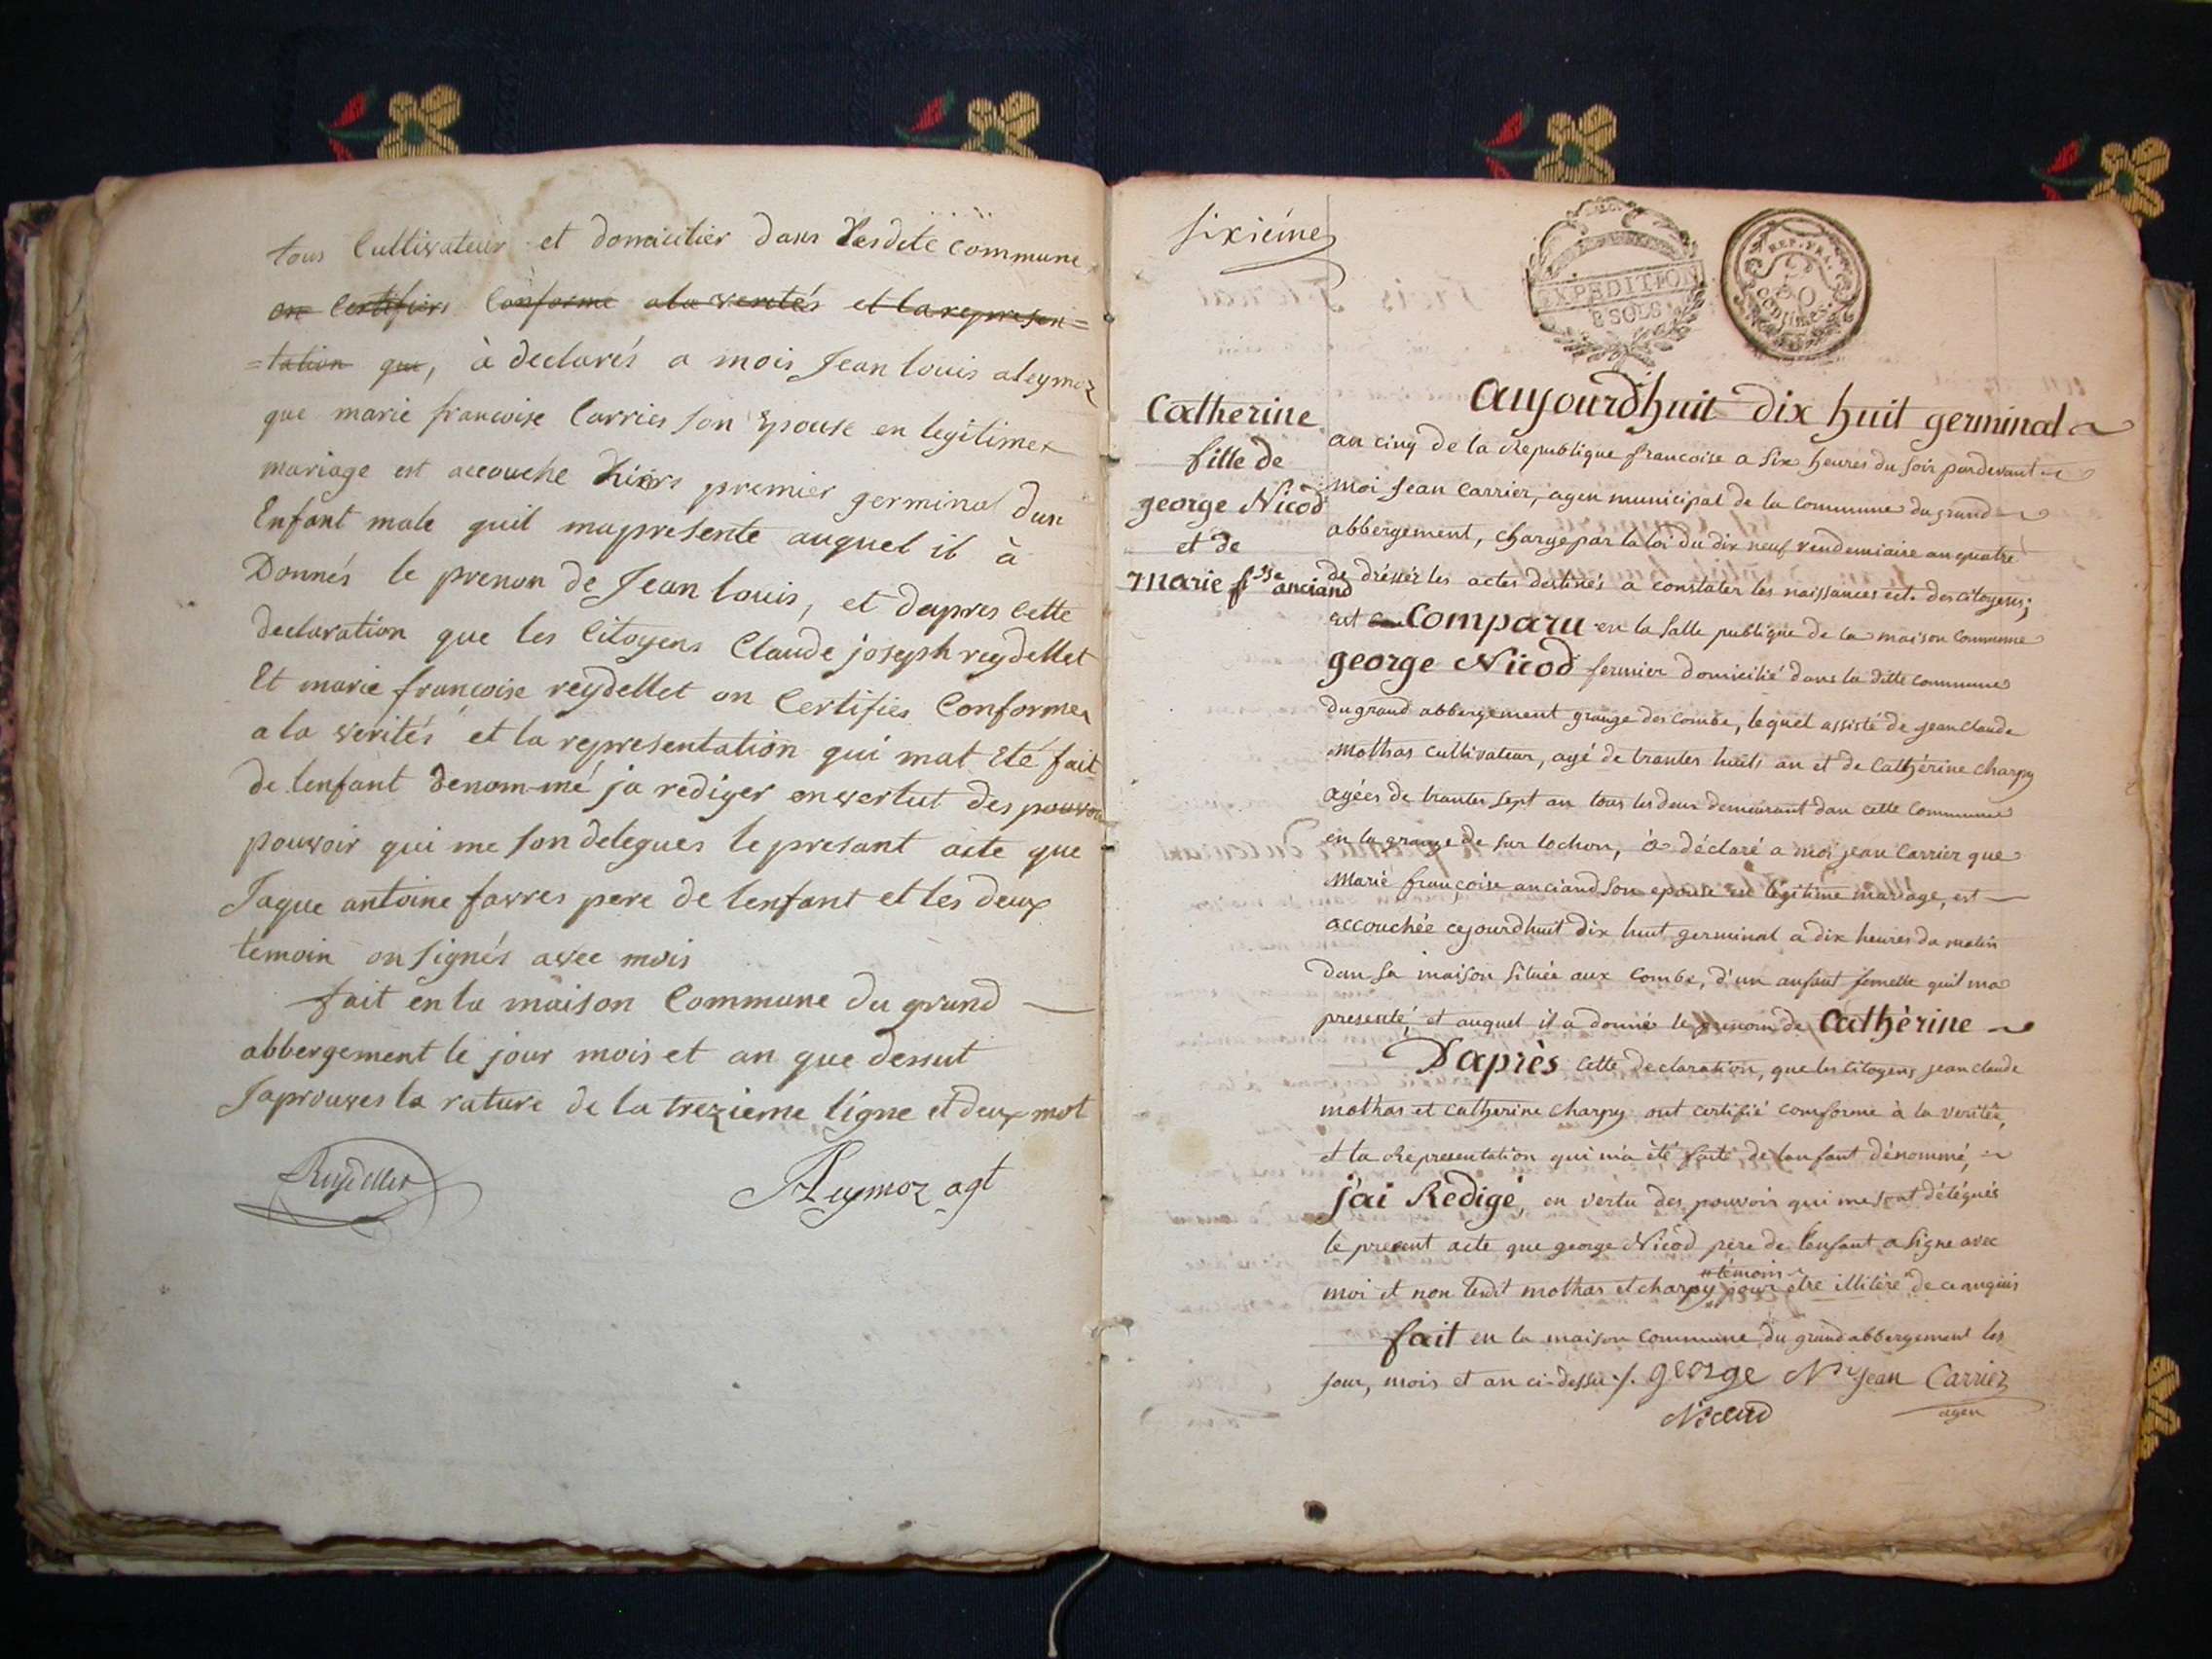 tous Cultivateur et domicilier dans Lesdite Commune
on Certifiers Conforme ala verités et la represen=
=tation que, à declarés a mois Jean louis aleymoz
que marie francoise Carrier son Epouse en legitime
mariage est accouche hiers premier germinal dun
Enfant male quil mapresente auquel il à
Donnés le prenon de Jean louis, et dapres Cette
declaration que les Citoyens Claude joseph reydellet
Et marie françoise reydellet on Certifies Conforme
a la verités et la representation qui mat Eté fait
de lenfant denom-mé ja rediger envertut des pouvoir
pouvoir qui me son delegues le presant acte que
Jaque antoine favres pere de lenfant et les deux
temoin on signés avec mois
fait en la maison Commune du grand
abbergement le jour mois et an que dessut
Japrouves la rature de la trezieme ligne et deux mot
Reydellet
Aleymoz agt
sixiéme
EXPEDITION
8 SOLS
REP. FRA.
50
Centimes
Catherine
fille de
george Nicod
et de
marie fse anciand
aujourdhuit dix huit germinal
an cinq de la Republique francoise a six heures du soir pardevant
moi Jean Carrier, agen municipal de la Commune du grand
abbergement, chargé par la loi du dix neuf vendemiaire an quatre
de drésser les actes destinés a constater les naissances ect. des citoyens;
est Comparu en la salle publique de la maison Commune
george Nicod fermier domicilié dans la ditte commune
du grand abbergement grange des combe, lequel assisté de jean claude
mothas cultivateur, agé de trantes huits an et de Cathérine charpy
agées de trantes sept an tous les deux demeurant dan cette Commune
en la grange de sur lochon, à déclaré a moi jean Carrier que
Marie françoise anciand son epouse en légitime mariage, est
accouchée cejourdhuit dix huit germinal a dix heures du matin
dan sa maison située aux Combe, d'un anfant femelle quil ma
presenté, et auquel il a donné le prenom de Cathèrine
D'après cette declaration, que les Citoyens jean claude
mothas et catherine charpy ont certifié comforme à la veritée,
et la Representation qui m'a été faite de lanfant dénommé,
j'ai Redigé, en vertu des pouvoir qui me sont délégués
le present acte que george Nicod père de l'enfant a signe avec
temoin
moi et non lesdit mothas et charpy pour etre illitèré de ce anquis
fait en la maison commune du grand abbergement les
jour, mois et an ci-dessu ./. george Ni Jean Carrier
Nicud agen